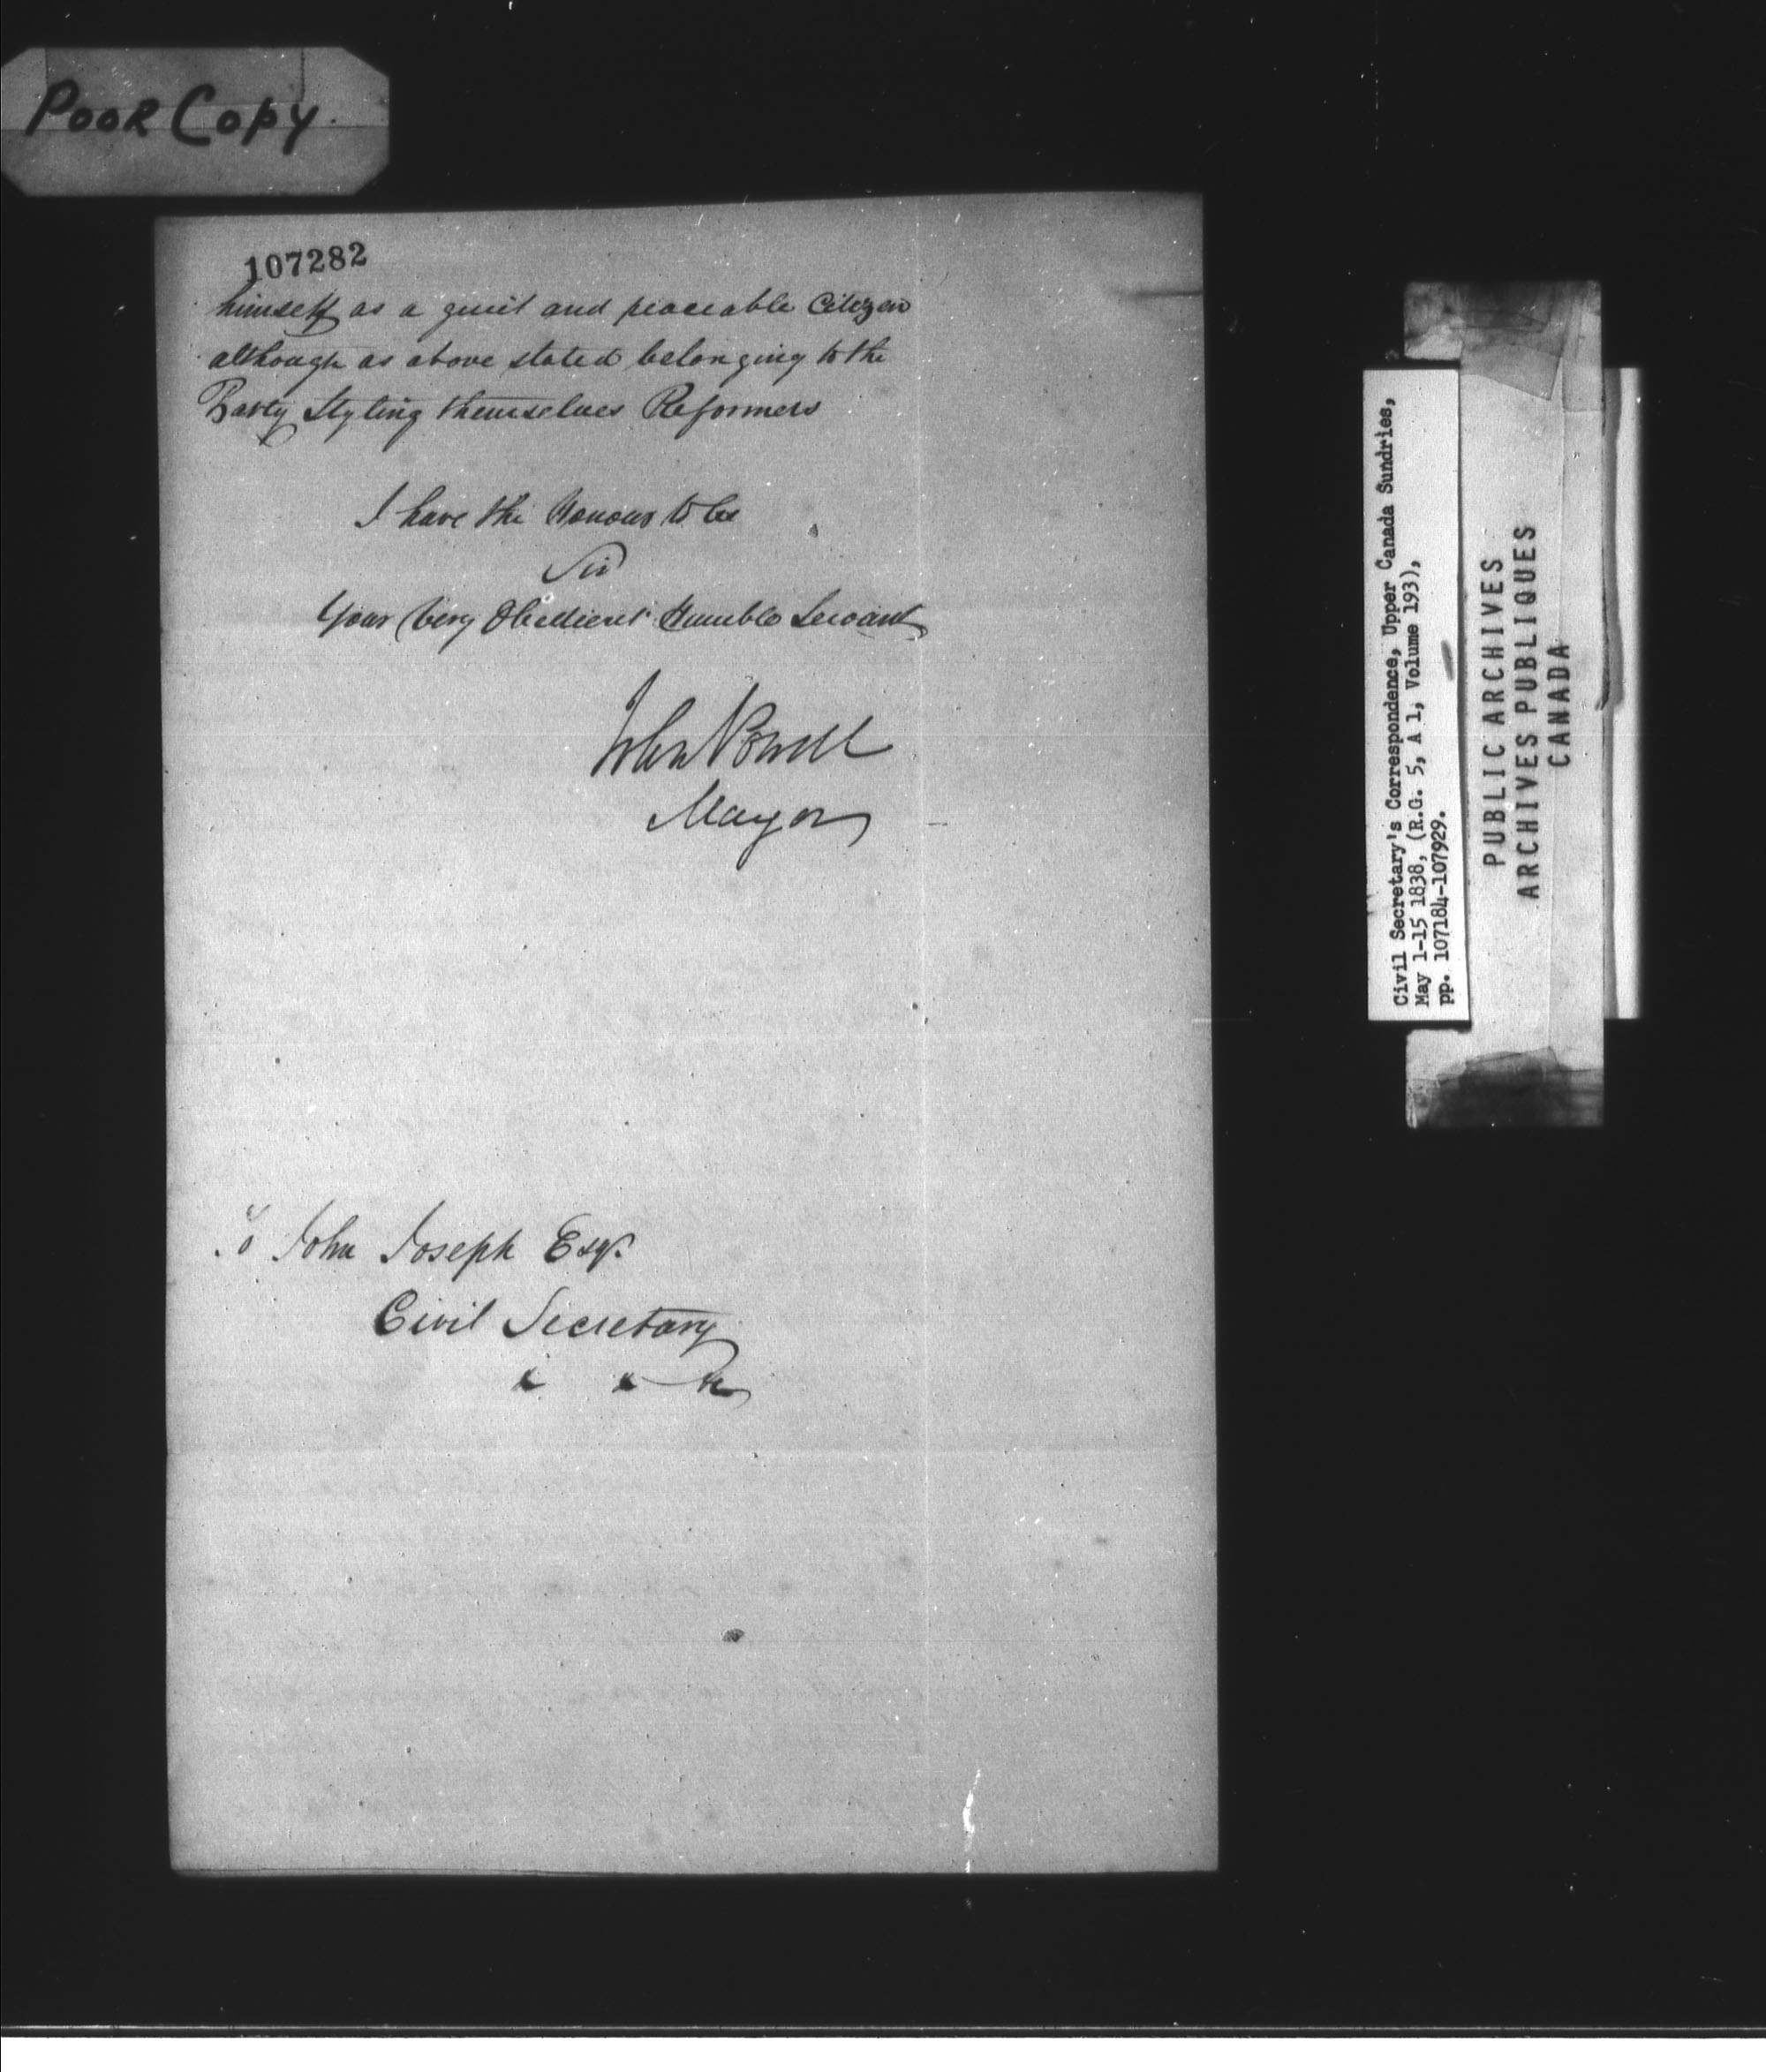 Poor Copy.
107282
himself as a quiet and peaceable Citizen
although as above stated belonging to the
Party Styling themselves Reformers
I have the Honour to be
Sir
Your Very Obedient Humble Servant
John Powell
Mayor
To John Joseph Esqr.
Civil Secretary
& & &c
Civil Secretary's Correspondence, Upper Canada Sundries,
May 1-15 1838, (R.G. 5, A 1, Volume 193),
pp. 107184-107929.
PUBLIC ARCHIVES
ARCHIVES PUBLIQUES
CANADA